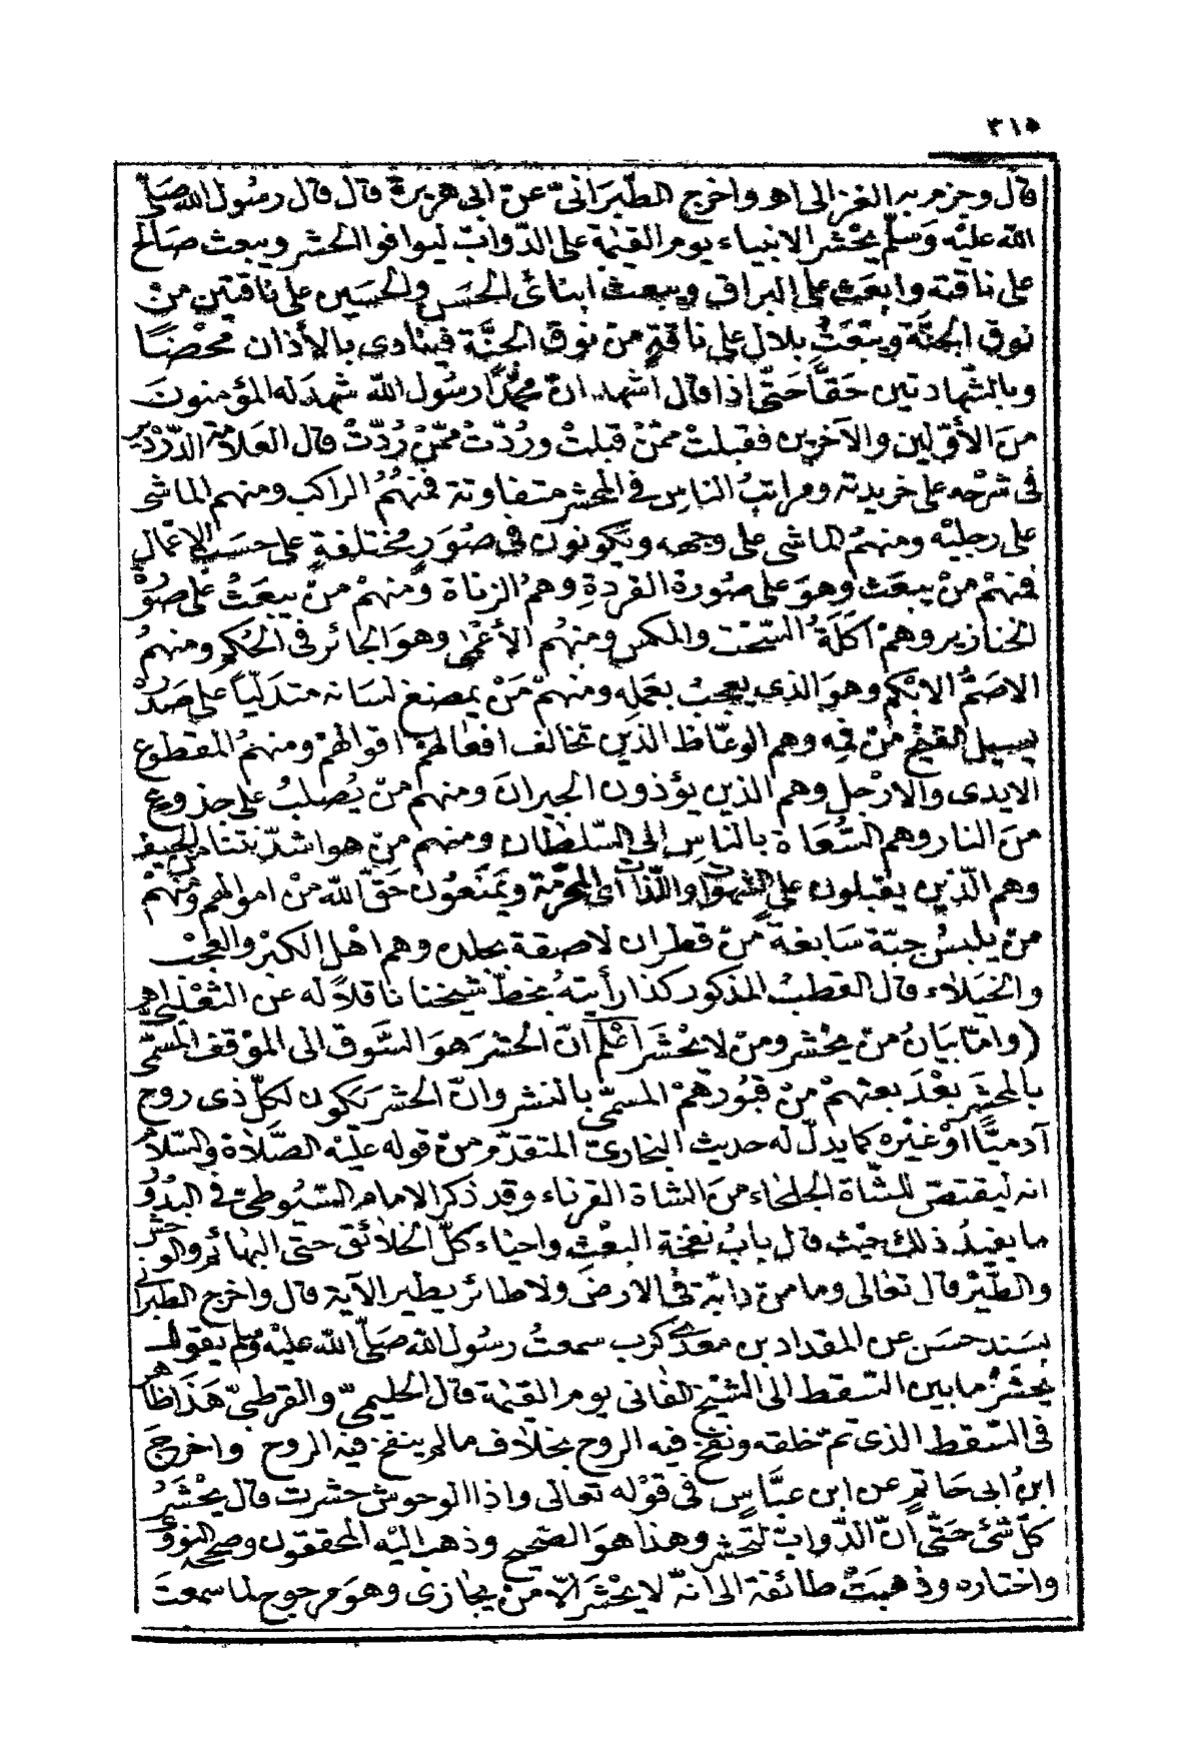 ٣١٥
قال وجزم به الغزالى اهـ واخرج الطّبَرَانىّ عن ابى هريرة قال قال رسُول الله صَلّى
الله عليْه وَسلّم يحْشر الانبياء يوم القيٰمة على الدّوابّ ليوافوا المحشر ويبعث صَالح
على ناقته وابعَث على البراق ويبعث ابنائ الحسَن والحسَين على ناقتين منْ
نوق الجنّة ويبْعَثُ بلال على ناقةٍ منْ نوق الجنَّة فينادى بالأذان محْضًا
وبالشّهادتين حَقًّا حَتّى إذا قال أشهد انّ محمّدًا رسُول الله شهدَ له المؤمنونَ
منَ الأوّلين والآخرين فقبلتْ ممّنْ قبلتْ ورُدّتْ ممّنْ رُدّتْ قال العَلاّمة الدّرْدير
فى شرْحه على خريدته ومراتبُ الناس فى المحشر متفاوتة فمنهُمُ الراكب ومنهم الماشى
على رجليْه ومنهمُ الماشى على وجهه ويَكونون فى صُوَرٍ مختلفةٍ على حسَب الاعْمال
فمنهمْ منْ يبعَث وهوَ على صُورة القردةِ وهمُ الزناة ومنهمْ منْ يبعَثُ على صُوْرة
الخنازير وهمْ اكَلَةُ السّحْت والمكس ومنهُم الأعْمٰى وهوَ الجائر فى الحُكم ومنهمُ
الاصَمُّ الابْكم وهوَ الذى يعجبُ بعَمَلِه ومنهمْ مَنْ يمضغ لسَانه متدَلّيًا على صَدْره
يسيل القيْح منْ فيه وهم الوعّاظ الذين تخالف افعالهمْ اقوالهمْ ومنهمُ المقطوع
الايدى والارْجل وهم الذين يؤذون الجيرانَ ومنهم منْ يُصْلبُ على جذوع
منَ النار وهم السُّعَاة بالناسِ الى السّلطان ومنهم منْ هو اشدّ نتنا منَ الجيف
وهم الّذين يقبلون على الشهوات واللّذات اى المحرّمة ويَمنَعُون حَقّ الله منْ اموالهم ومنهمْ
منْ يلبسُ جبّة سَابغة منْ قطران لاصقة بجلده وهم اهْل الكبْر والعُجْب
والخيَلاء قال القطبُ المذكور كذا رأيته بخطّ شيخنا ناقلاً له عن الثعْلبى اهـ
(وامّا بيَانُ منْ يحْشر ومنْ لا يحْشَر) اعْلم انّ الحشْر هوَ السَّوق الى الموْقف المسَمّى
بالمحْشَر بعْدَ بعثهمْ منْ قبُورهمْ المسمّى بالنشر وانّ الحشر يَكون لكلّ ذى روح
آدميًّا اوْ غيْره كما يدلّ له حديث البخارىّ المتقدّم منْ قوله عليْه الصّلاة والسّلام
انه ليقتصّ للشّاة الجلحَاء منَ الشاة القرناء وقد ذكر الامام السّيُوطىّ فى البُدُور
ما يفيدُ ذلك حيْث قال بابُ نفخة البعْثِ واحيَاء كلّ الخلائق حتى البهَائم والوحْش
والطّيْر قال تعَالى وما منْ دابّة فى الارض ولا طائر يطير الآية قال واخرج الطبرانى
بسَند حسَن عن المقداد بن معْدى كرب سمعتُ رسُول الله صَلّى الله عليْه وسلم يقول
يحْشَرُ ما بين السّقط الى الشيْخ الفانى يوم القيٰمة قال الحليمىّ والقرطبىّ هَذا ظاهر
فى السّقط الذى تمّ خلقه ونفخ فيه الروح بخلاف ما لم ينفخ فيْه الروح واخرجَ
ابنُ ابى حَاتمٍ عن ابن عبَّاسٍ فى قوْله تعَالى واذا الوحوش حشرت قال يحْشَرُ
كلّ شئ حَتّى انّ الدّوابّ لتحْشر وهذا هوَ الصّحيح وذهب اليْه المحققون وصحّحه النّووى
واختاره وذهبَتْ طائفة الى انّه لا يحْشَر إلاّ منْ يجَازى وهوَ مرجوح لما سمعتَ